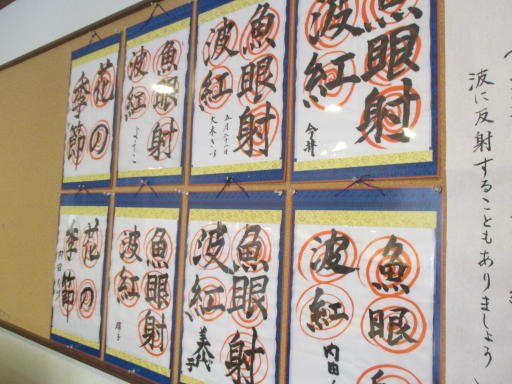 魚眼射
波紅
今井
魚眼射
波紅
五月二十一日
魚眼射
波紅
花の
季節
魚眼
波紅
内田
魚眼射
波紅
美代子
魚眼射
波紅
花の
季節
波に反射することもありましょう